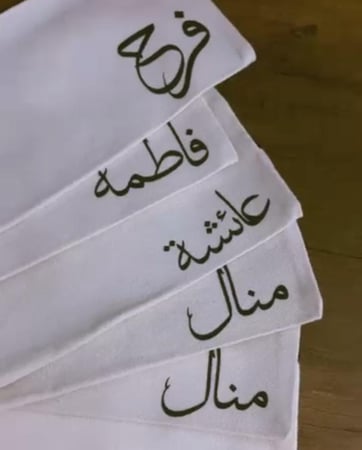 فرح
فاطمه
عائشة
منال
منال